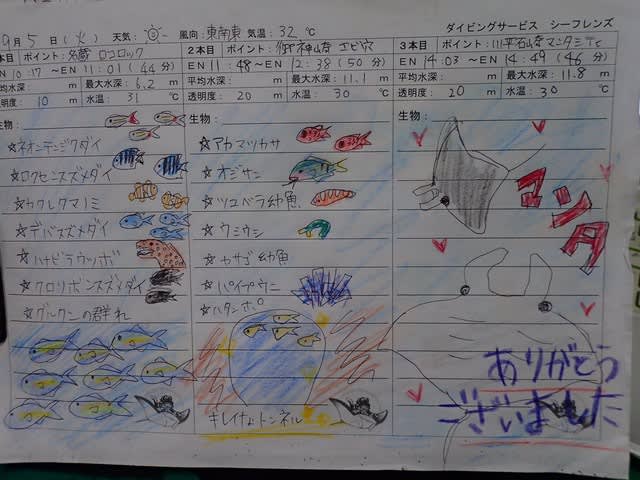 9月 5日 (火) 天気: 風向: 東南東 気温: 32℃ ダイビングサービス シーフレンズ
本目 ポイント: 名蔵 ロコロック
EN 10:17 ～EN 11:01 (44分)
平均水深: m 最大水深: 6.2 m
透明度: 10 m 水温: 31 ℃
生物:
☆ネオンテンジクダイ
☆ロクセンスズメダイ
☆カクレクマノミ
☆デバスズメダイ
☆ハナビラウツボ
☆クロリボンスズメダイ
☆グルクンの群れ
2本目 ポイント: 御神山寺 エビ穴
EN 11:48～EN 12:38 (50分)
平均水深: m 最大水深: 11.1 m
透明度: 20 m 水温: 30 ℃
生物:
☆アカマツカサ
☆オジサン
☆ツユベラ幼魚
☆ウミウシ
☆カサゴ幼魚
☆パイプウニ
☆ハタンポ
キレイなトンネル
3本目 ポイント: 川平石崎マンタ
EN 14:03 ～EN 14:49 (46分)
平均水深: m 最大水深: 11.8 m
透明度: 20 m 水温: 30 ℃
生物:
マンタ
ありがとう
ございました